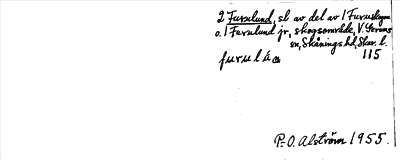 2 Furulund, sl av del av 1 Furuskogen
o. 1 Furulund jr, skogsområde, V. Torums
sn, Skånings hd, Skar. l.
furulún 115
P. O. Alström 1955.